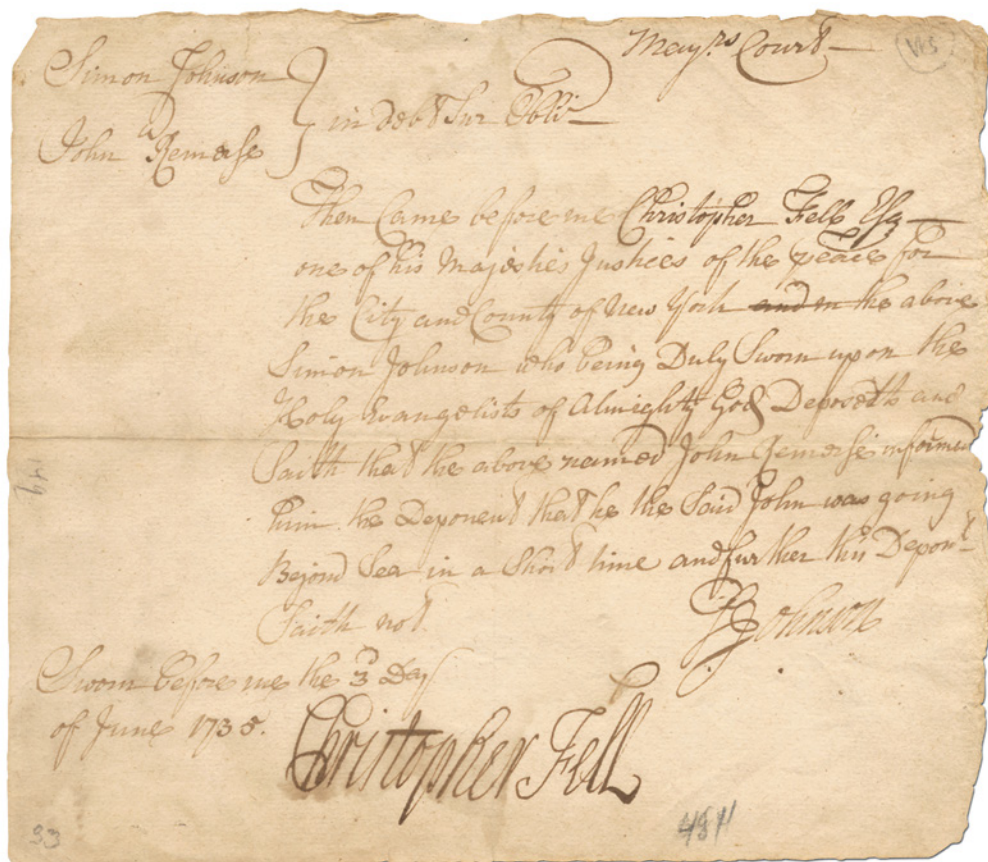 Mayrs Court
Simon Johnson
in debt Sur Obli
John Remerse
Then Came before me Christopher Fell Esq
one of his Majesties Justices of the peace for
the City and County of New York and in the above
Simon Johnson who being Duly Sworn upon the
Holy Evangelists of Almighty God Deposeth and
Saith that the above named John Remerse informed
him the Deponent that he the Said John was going
Bejond Sea in a Short time and further this Depont
Saith not
SJohnson
Sworn before me the 3d Day
of June 1735.
Christopher Fell
33